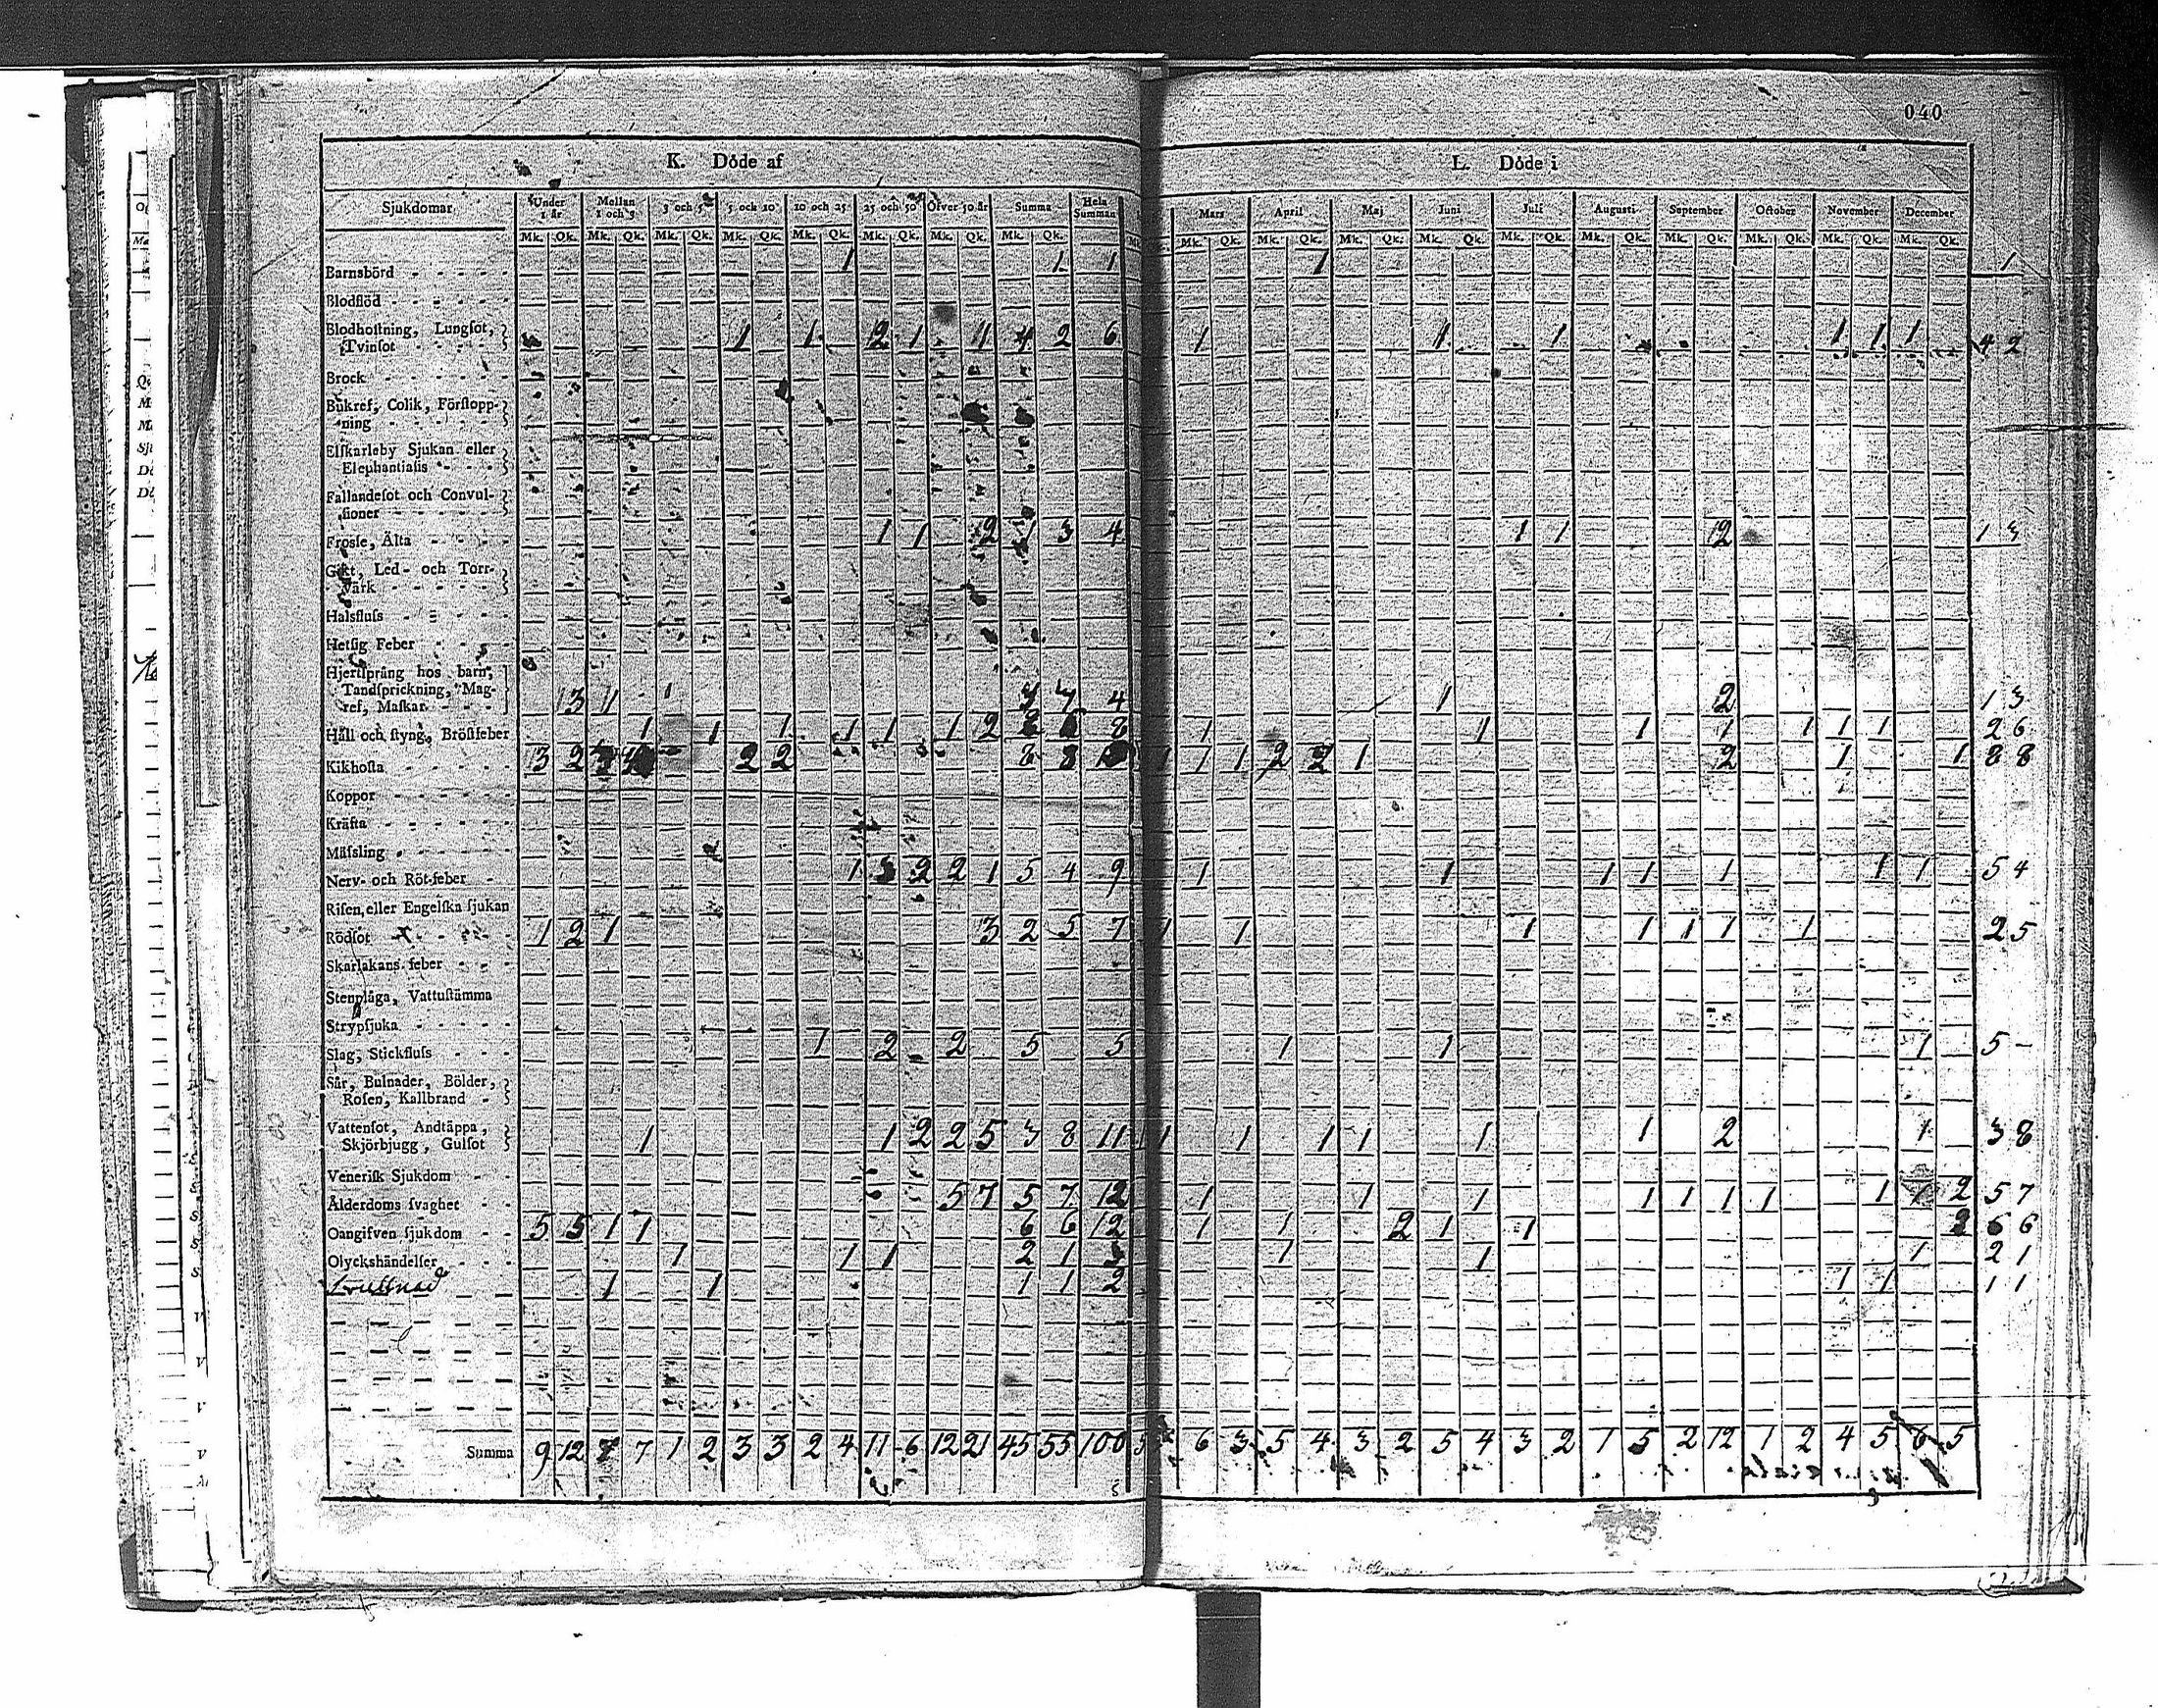 040
K. Döde af
Sjukdomar Under 1 år Mellan 1 och 3 3 och 5 5 och 10 10 och 25 25 och 50 Öfver 50 år Summa Hela Summan
Mk. Qk. Mk. Qk. Mk. Qk. Mk. Qk. Mk. Qk. Mk. Qk. Mk. Qk. Mk. Qk.
Barnsbörd - - - - - 1 1 1
Blodflöd - - - - -
Blodhoſtning, Lungſot,
Tvinſot - - - - 1 1 2 1 1 4 2 6
Brock - - - - - -
Bukref, Colik, Förſtopp-
ning - - - - -
Elſkarleby Sjukan eller
Elephantiaſis - - - -
Fallandeſot och Convul-
ſioner - - - - -
Froſſe, Älta - - - - 1 1 2 1 3 4
Gikt, Led- och Torr-
Värk - - - - -
Halsfluſs - - - - -
Hetſig Feber - - - -
Hjertſprång hos barn,
Tandſprickning, Mag-
ref, Maſkar - - - 3 1 4
Håll och ſtyng, Bröſtfeber 1 1 1 1 1 1 2 8
Kikhoſta - - - - - 3 2 2 2 8 8
Koppor - - - - -
Kräfta - - - - -
Mäſsling - - - - -
Nerv- och Röt-feber - 1 2 2 1 5 4 9
Riſen, eller Engelſka ſjukan
Rödſot - - - - 1 2 1 3 2 5 7
Skarlakans feber - - -
Stenplåga, Vattuſtämma
Strypſjuka - - - - -
Slag, Stickfluſs - - - 1 2 2 5 5
Sår, Bulnader, Bölder,
Roſen, Kallbrand -
Vattenſot, Andtäppa,
Skjörbjugg, Gulſot 1 1 2 2 5 3 8 11
Veneriſk Sjukdom - -
Ålderdoms ſvaghet - - 5 7 5 7 12
Oangifven ſjukdom - - 5 5 1 1 6 6 12
Olyckshändelſer - - - 1 1 1 2 1 3
1 1 1 1 2
Summa 9 12 7 7 1 2 3 3 2 4 11 6 12 21 45 55 100
L. Döde i
Mars April Maj Juni Juli Auguſti September October November December
Mk. Qk. Mk. Qk. Mk. Qk. Mk. Qk. Mk. Qk. Mk. Qk. Mk. Qk. Mk. Qk. Mk. Qk. Mk. Qk.
1 1
1 1 1 1 1 1 4 2
1 1 2 1 3
1 2 1 3
1 1 1 1 1 1 1 2 6
1 1 1 2 2 1 2 1 1 8 8
1 1 1 1 1 1 1 5 4
1 1 1 1 1 1 1 2 5
1 1 1 5 -
1 1 1 1 1 1 2 1 3 8
1 1 1 1 1 1 1 1 1 2 5 7
1 1 2 1 1 2 6 6
1 1 1 2 1
1 1 1 1
6 3 5 4 3 2 5 4 3 2 1 5 2 12 1 2 4 5 6 5